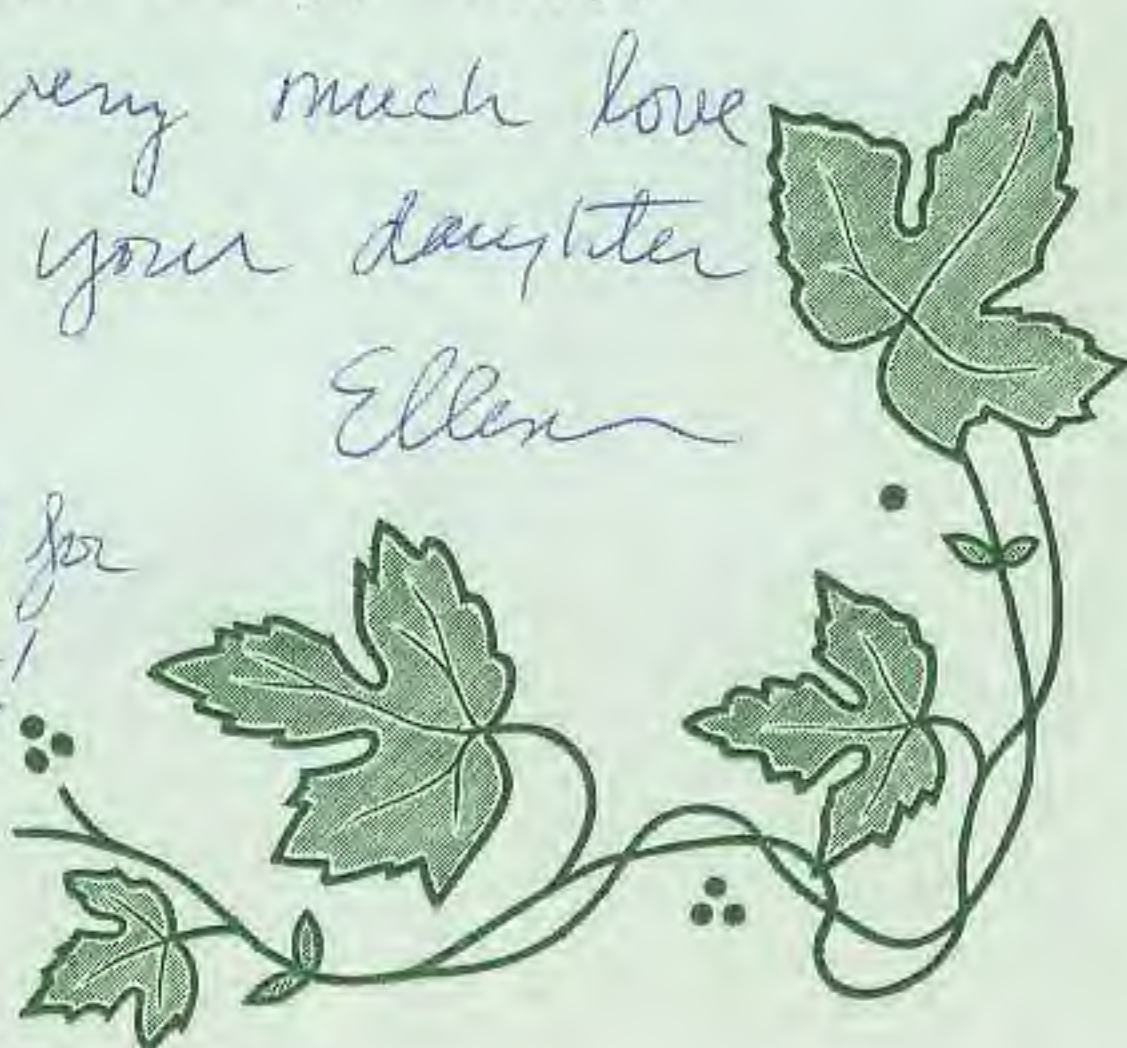 very much love
your daughter
Ellen
for